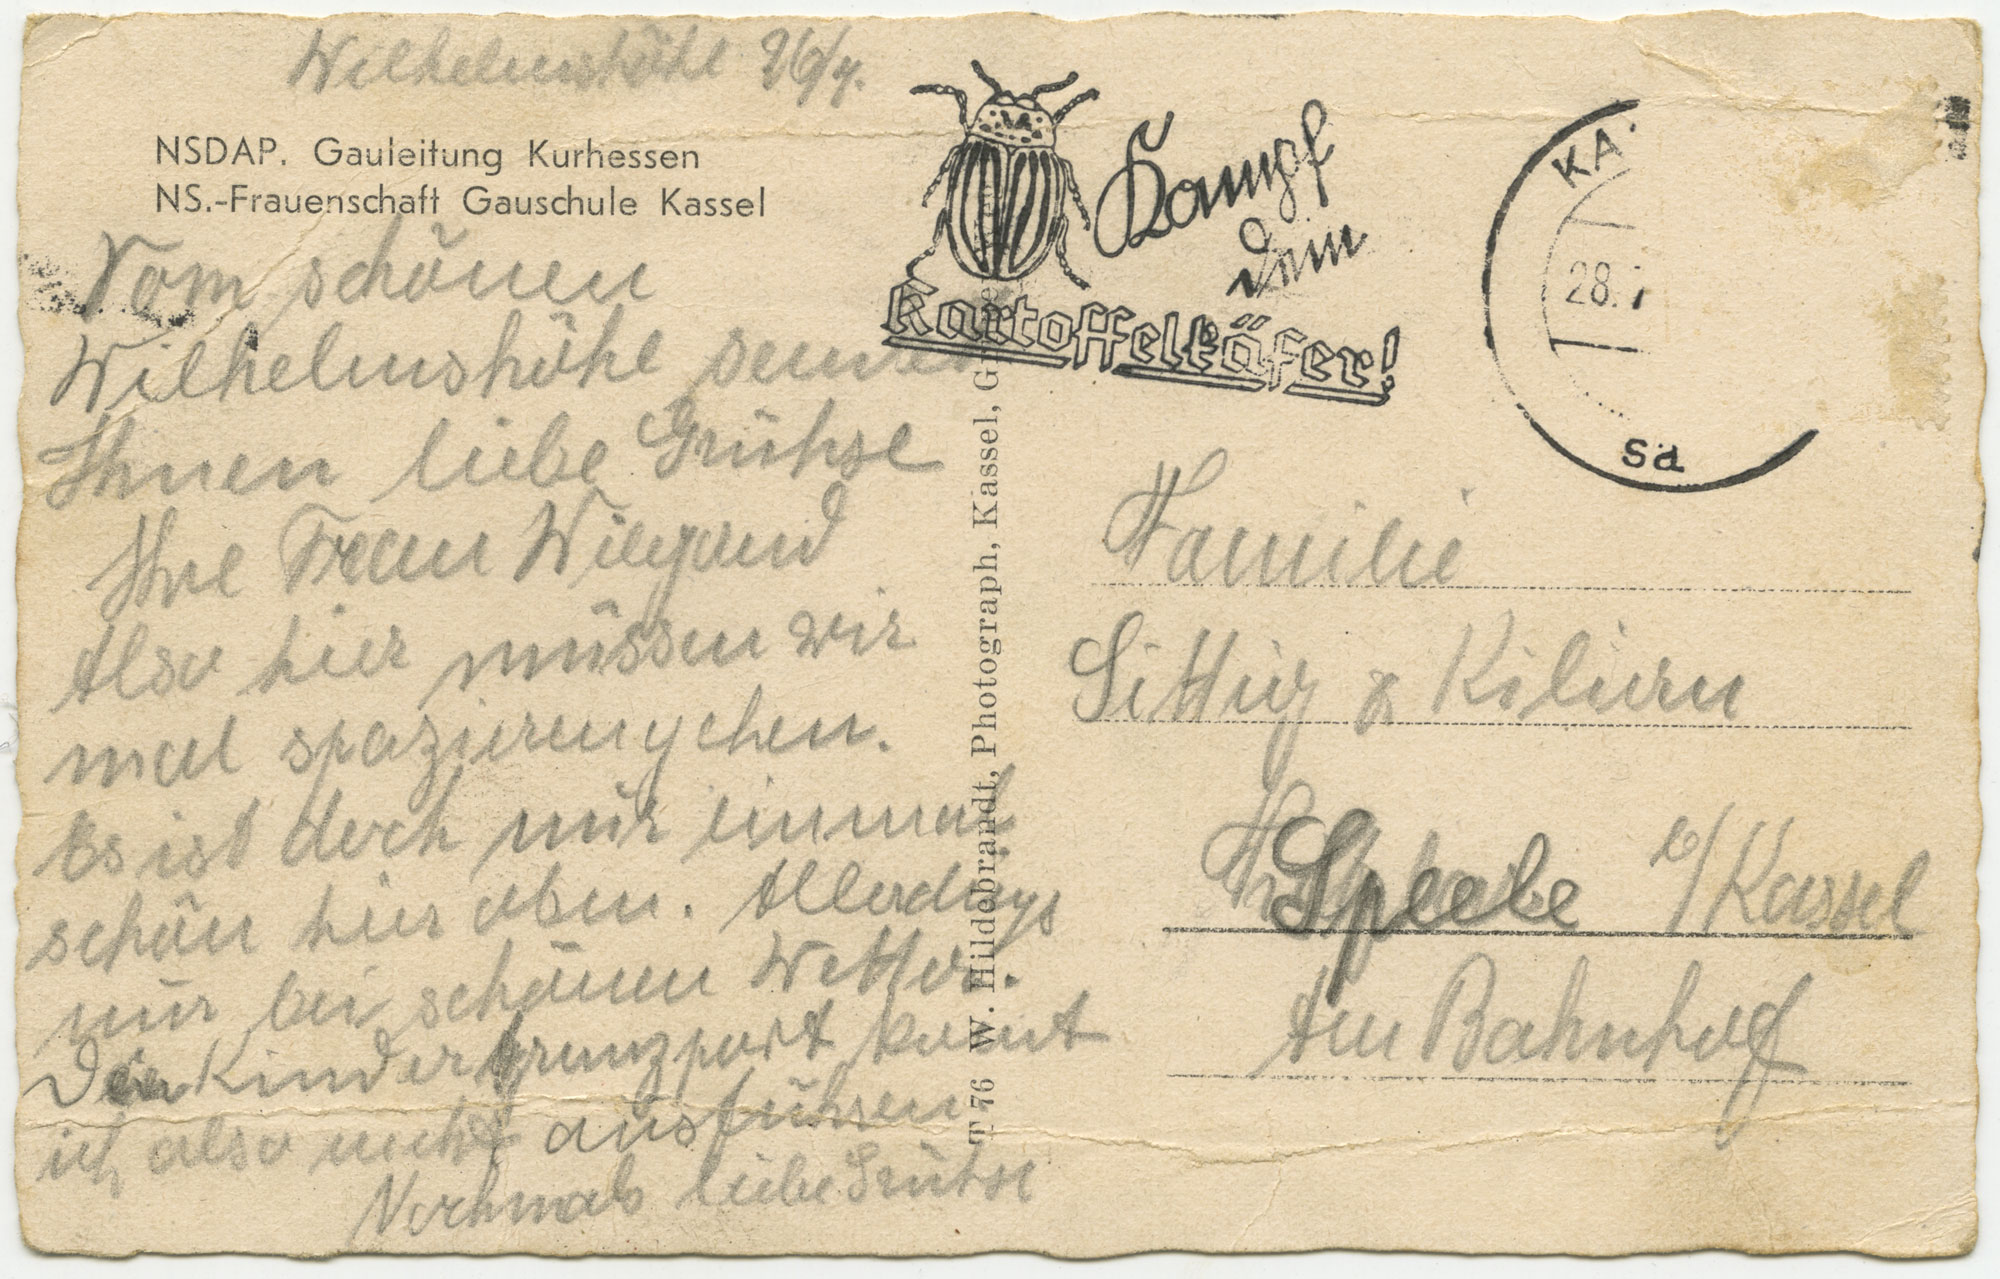 Wilhelmshöhe 26/7.
NSDAP. Gauleitung Kurhessen
NS.-Frauenschaft Gauschule Kassel
Vom schönen
Wilhelmshöhe sendet
Ihnen liebe Grühse
Ihre Frau Wiegand
Also hier müssen wir
mal spazierengehen.
Es ist doch nür einmal
schön hier oben. Allerdings
nür bei schönen Wetter.
Den Kinder konnt
ich also nicht ausführen
Nochmals liebe Grühse
T 76 W. Hildebrandt, Photograph, Kassel,
Kampf
dem
Kartoffelkäfer!
KA
28.7
Familie
Sittig & Kilian
Speele b/Kassel
Am Bahnhof